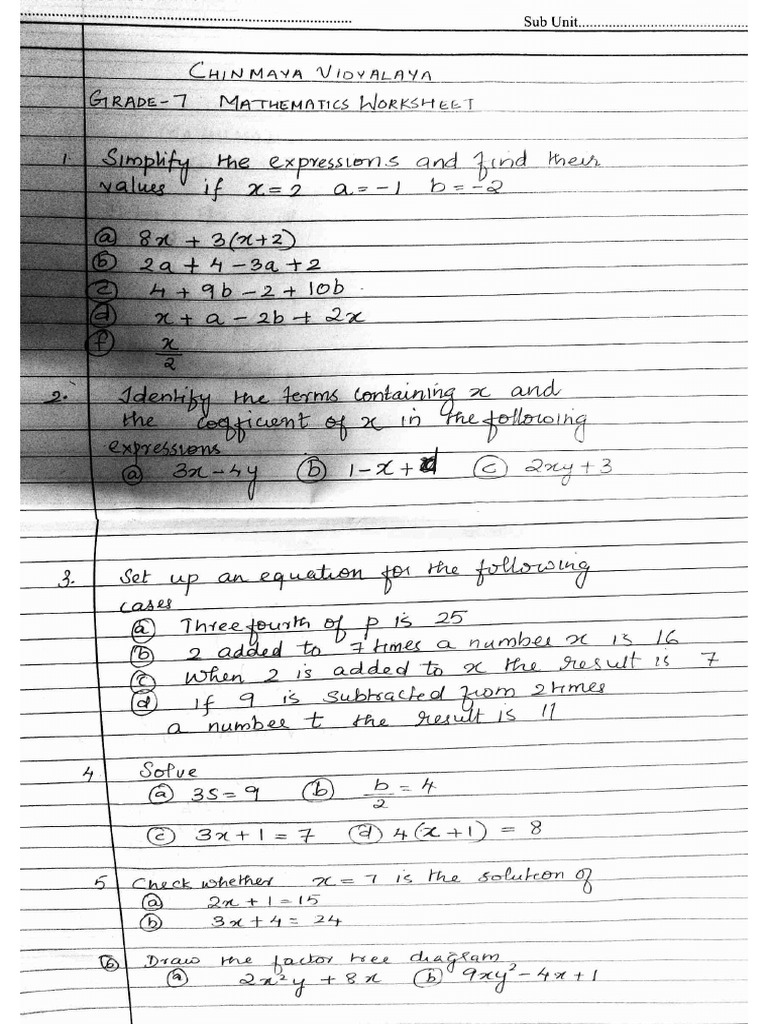 Sub Unit
CHINMAYA VIDYALAYA
GRADE-7 MATHEMATICS WORKSHEET
1. Simplify the expressions and find their
values if x=2 a=-1 b=-2
(a) 8x + 3(x+2)
(b) 2a + 4 - 3a + 2
(c) 4 + 9b - 2 + 10b
(d) x + a - 2b + 2x
(f) x/2
2. Identify the terms containing x and
the coefficient of x in the following
expressions
(a) 3x - 4y (b) 1 - x + (c) 2xy + 3
3. Set up an equation for the following
cases
(a) Three fourth of p is 25
(b) 2 added to 7 times a number x is 16
(c) When 2 is added to x the result is 7
(d) if 9 is subtracted from 2 times
a number t the result is 11
4 Solve
(a) 3s = 9 (b) b/2 = 4
(c) 3x + 1 = 7 (d) 4(x+1) = 8
5 Check whether x = 7 is the solution of
(a) 2x + 1 = 15
(b) 3x + 4 = 24
(6) Draw the factor tree diagram
(a) 2x²y + 8x (b) 9xy² - 4x + 1